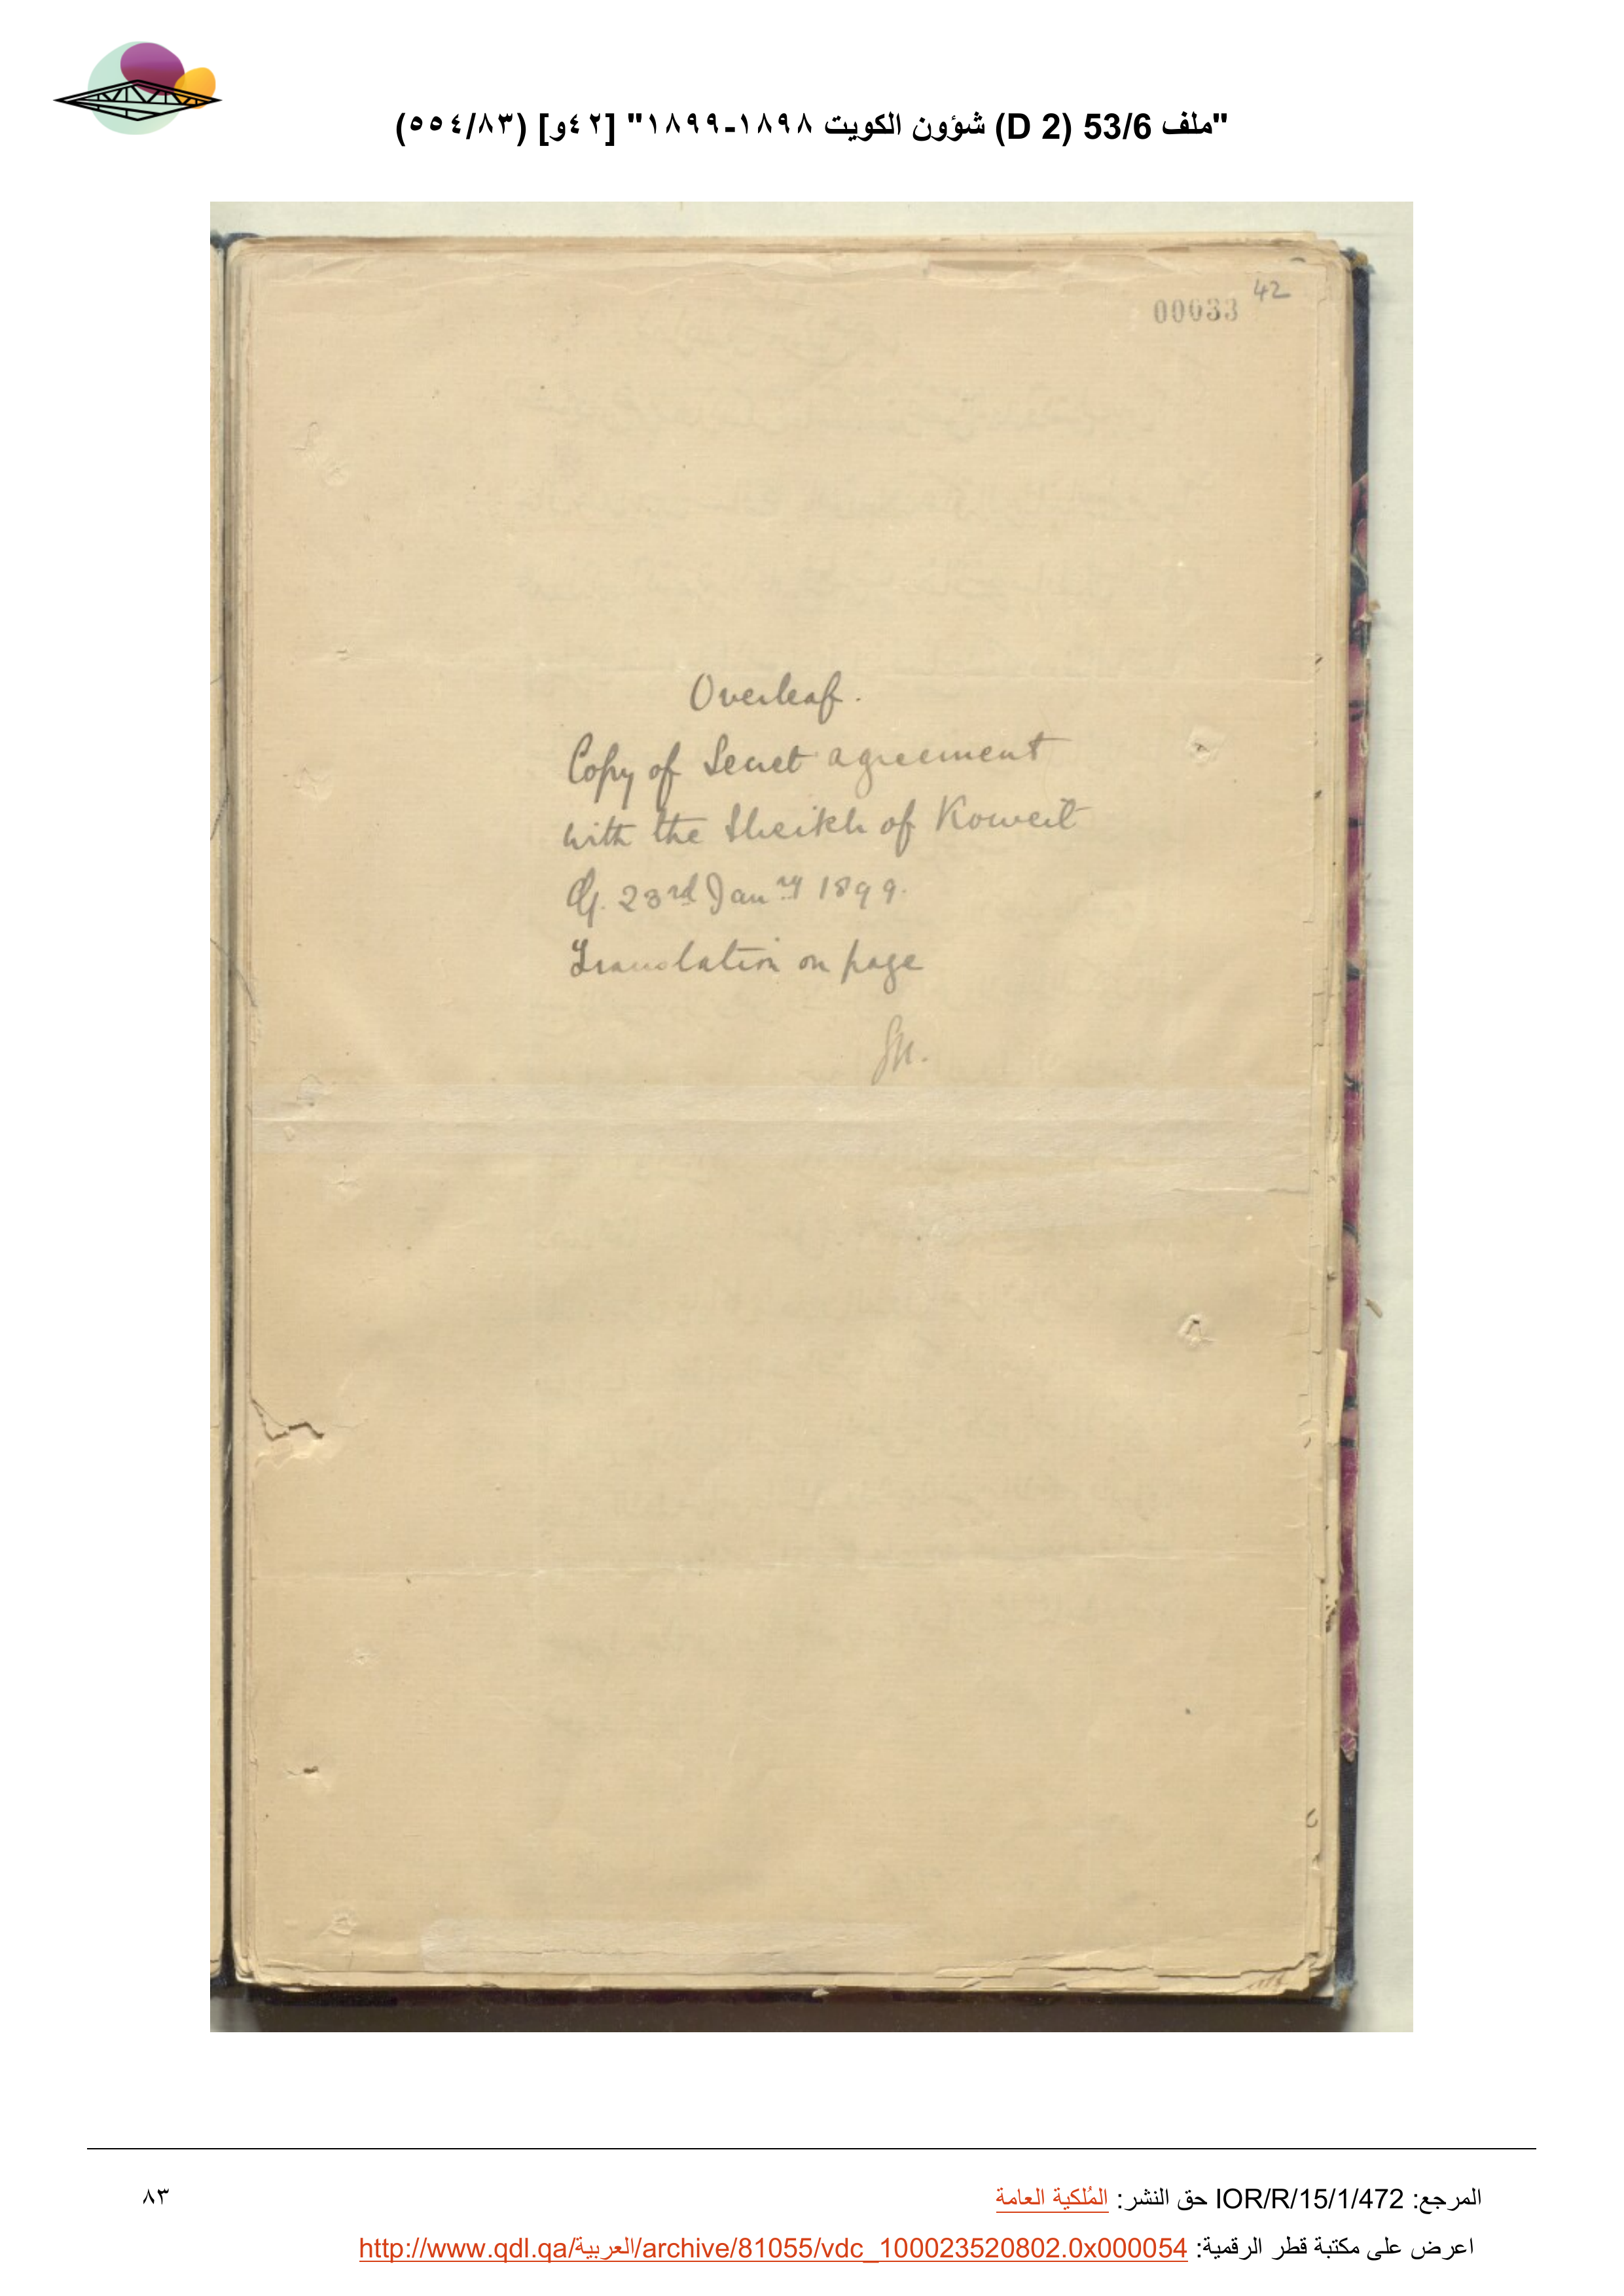 "ملف 53/6 (D 2) شؤون الكويت ١٨٩٨-١٨٩٩" [٤٢و] (٥٥٤/٨٣)
42
00033
Overleaf.
Copy of Secret agreement
with the Sheikh of Koweit
23rd Janry 1899.
Translation on page
المرجع: IOR/R/15/1/472 حق النشر: المُلكية العامة
٨٣
اعرض على مكتبة قطر الرقمية: http://www.qdl.qa/العربية/archive/81055/vdc_100023520802.0x000054